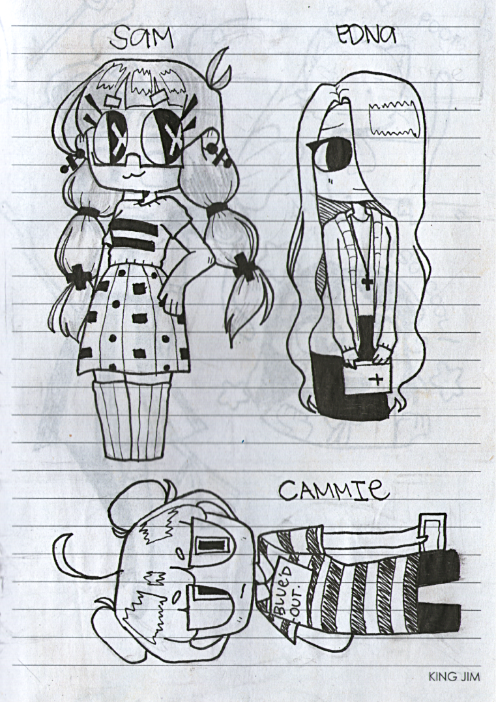 Sam
EDNa
CAMMIE
BLUE'D
OUT.
KING JIM